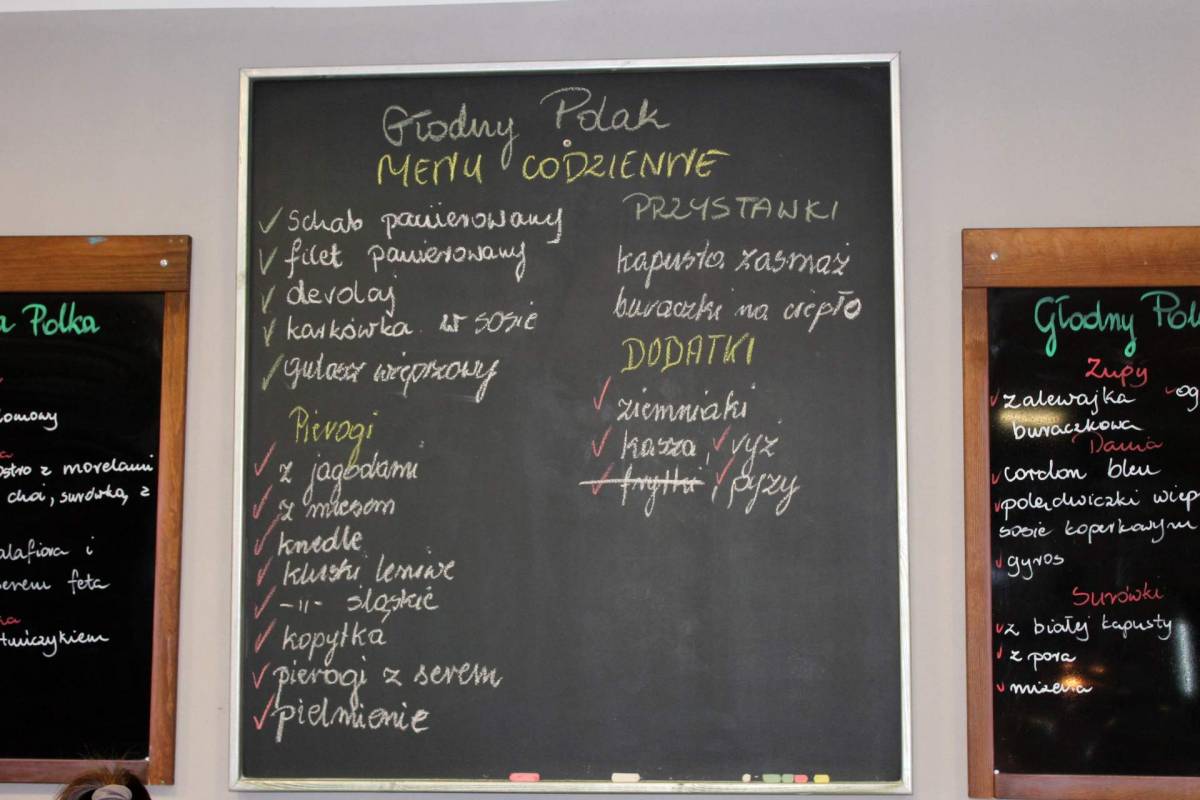 Głodny Polak
MENU CODZIENNE
schab panierowany
filet panierowany
devolaj
karkówka w sosie
gulasz wieprzowy
Pierogi
z jagodami
z mięsem
knedle
kluski leniwe
-〃- śląskie
kopytka
pierogi z serem
pielmienie
PRZYSTAWKI
kapusta zasmaż
buraczki na ciepło
DODATKI
ziemniaki
kasza, ryż
frytki, pyzy
a Polka
omowy
ostro z morelami
choi, surówka, z
alafiora i
serem feta
tuńczykiem
Głodny Pol
Zupy
zalewajka og
buraczkowa
Dania
cordon bleu
polędwiczki wiep
sosie koperkowym
gyros
Surówki
z białej kapusty
z pora
mizeria